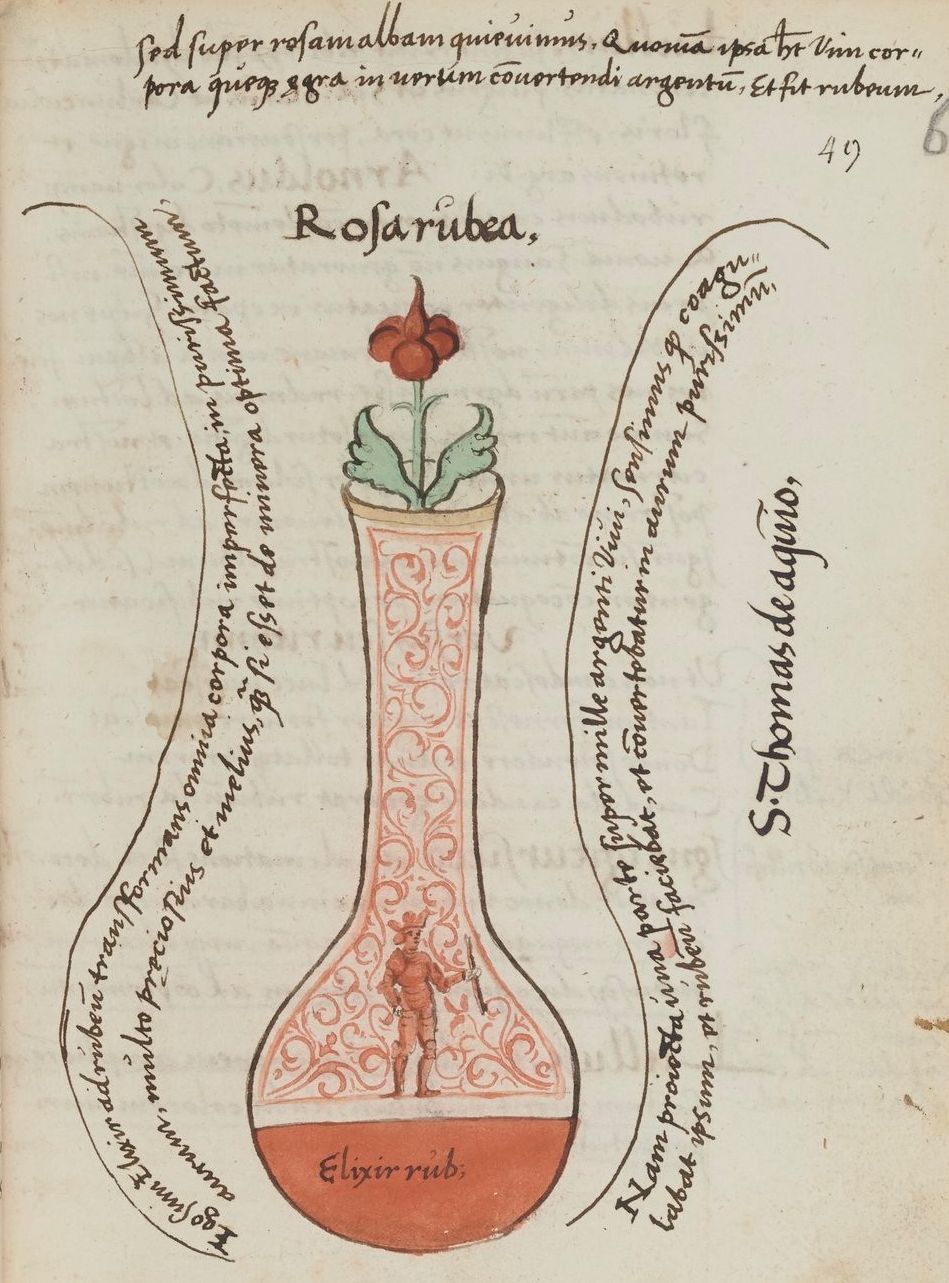 Sed super rosam albam quievimus. Quoniā ipsa hēt Vim cor„
pora queqɜ ęgra in verum cōvertendi argentū, Et fit rubeum,
49
6
Rosa rubea,
Ego sum Elixir ad rubeū transformans omnia corpora imperfecta, in purissimum
aurum, multo pręciosius et melius, ꝙ si esset de minera optima factum.
Nam proiecta una parte super mille argenti Vivi, sensimus ꝙ coagu„
labat ipsum, et rubeū faciebat, et cōvertebatur in aurum purissimū.
S. Thomas de aquīo,
Elixir rub;